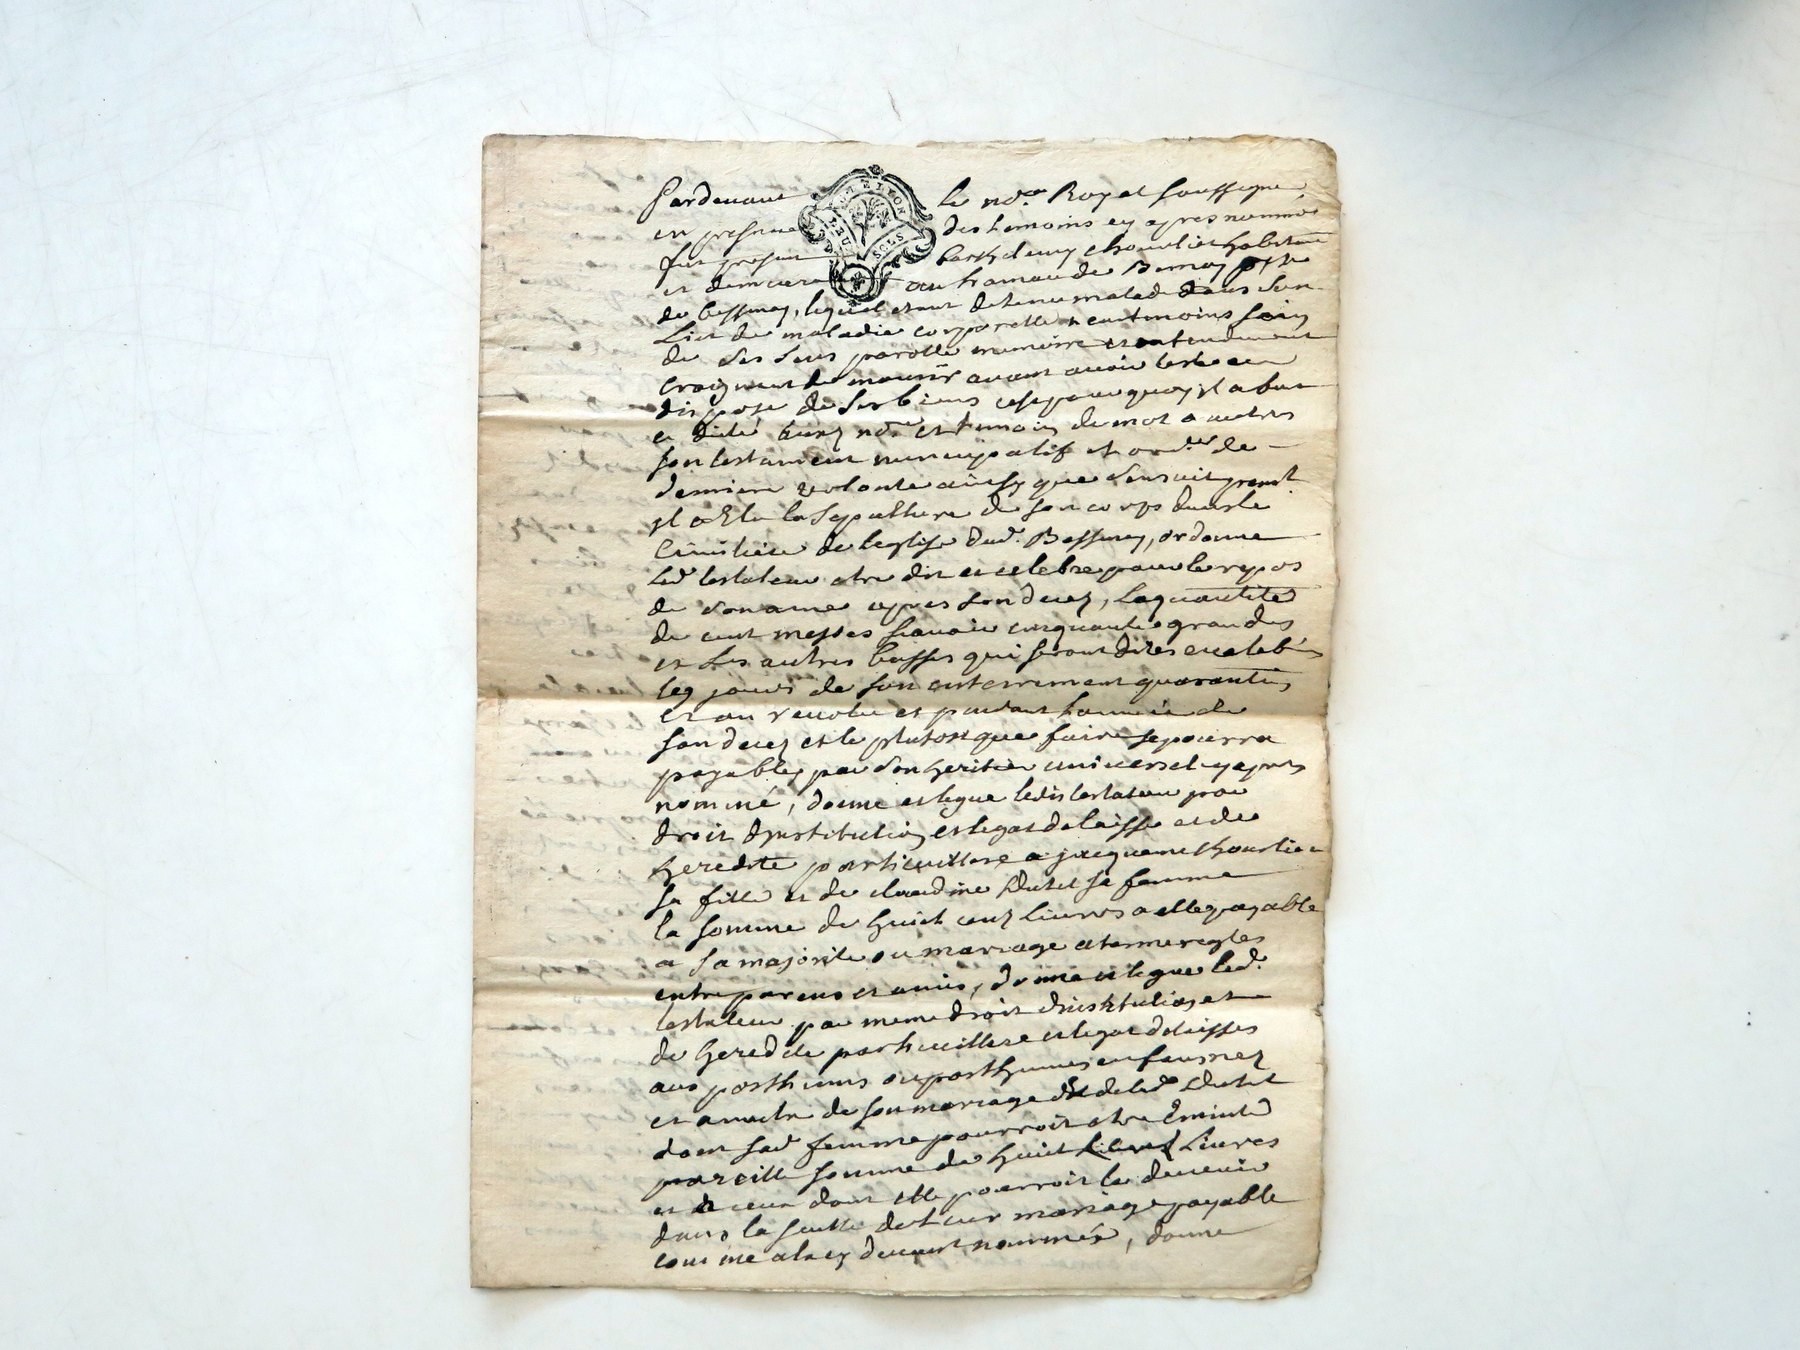 Pardevant le no.re Royal soussigné
en presence des temoins cy apres nommés
fut present Barthelemy chouvlier habitant
et demeurant au hameau de Bernay psse
de Bessenay, lequel etant detenu malade dans son
Lict de maladie corporelle neantmoins sain
de ses sens parolle memoire et entendement
craignant de mourir avant avoir teste ou
dispose de ses biens cest pour quoy il a fait
et dicté auxd. nore et temoins de mot a autres
son testament nuncupatif et ord.ce de
derniere volonte ainsy que sensuit premt
yl a Elu la Sepulture de son corps dans le
Cimitiere de leglise dud. Bessenay, ordonne
led testateur etre dit et celebre pour le repos
de son ame apres son decez, la quantité
de cent messes scavoir cinquante grandes
et les autres basses qui seront dites et celebrés
les jours de son enterrement quarantin,
et an revolu et pendant lannée de
son decez et le plutost que faire se pourra
payables par son heritier universel cy apres
nommé, donne et legue ledit testateur par
droit dinstitution et legat delaisse et de
heredité particulliere a jacqueme chourlier
sa fille et de claudine Dutel sa femme
la somme de huict cent livres a elle payable
a sa majorité ou mariage a terme regles
entre parens et amis, donne et legue led.
testateur par meme droit dinstitution et
de heredite particulliere et legat delaisses
aux posthumes ou posthumes enfans nez
et a naitre de son mariage de lad Dutel
dont sad femme pourroit etre Enceinte
pareille somme de huict Livres
et a ceux dont elle pourroit le devenir
dans la suitte de leur mariage payable
comme a la cy devant nommée, donne
DE LYON
SOLS